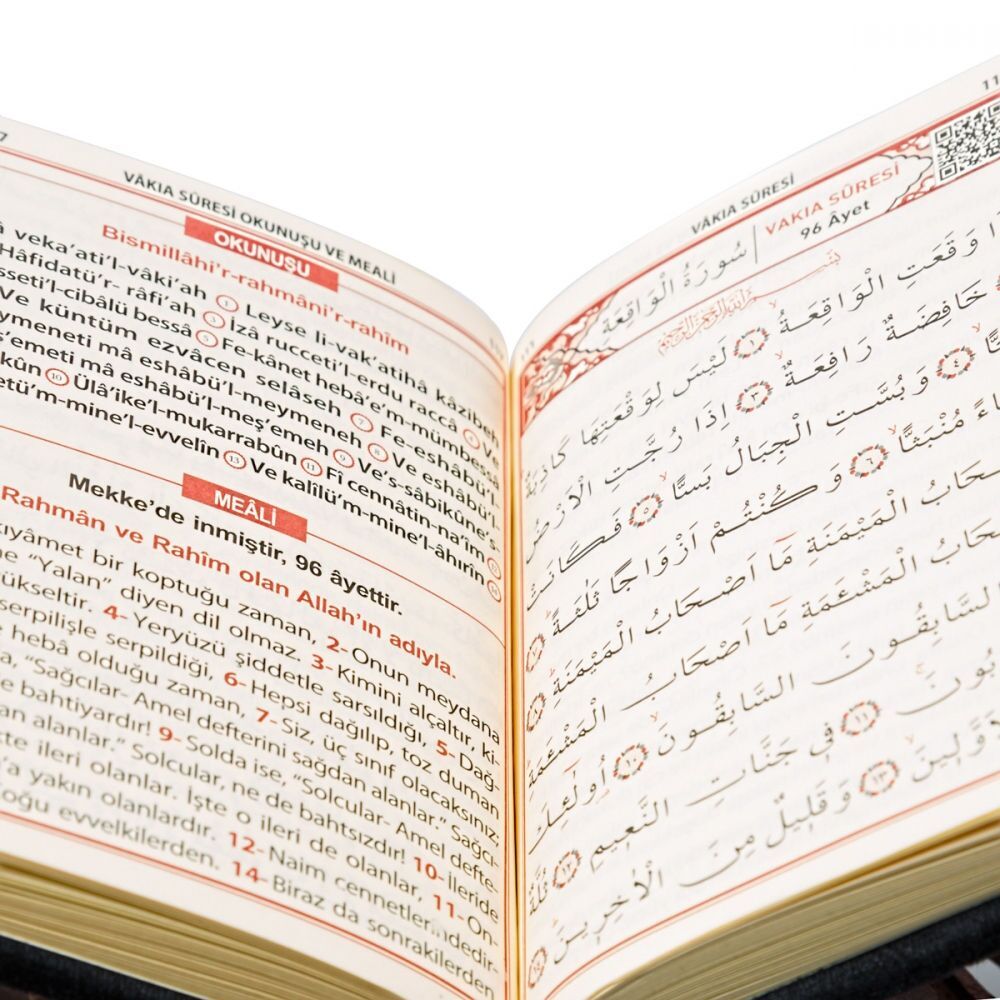 VÂKIA SÛRESİ OKUNUŞU VE MEALİ
OKUNUŞU
Bismillâhi'r-rahmâni'r-rahîm
veka'ati'l-vâki'ah ① Leyse li-vak'atihâ kâzibeh
Hâfidatü'r- râfi'ah ③ İzâ rucceti'l-erdu raccâ ④ Ve
sseti'l-cibâlü bessâ ⑤ Fe-kânet hebâ'e'm-mümbessâ
Ve küntüm ezvâcen selâseh ⑦ Fe-eshâbü'l-
ymeneti mâ eshâbü'l-meymeneh ⑧ Ve eshâbü'l-
ş'emeti mâ eshâbü'l-meş'emeh ⑨ Ve's-sâbikûne's-
kûn ⑩ Ülâ'ike'l-mukarrabûn ⑪ Fî cennâtin-na'îm ⑫
etü'm-mine'l-evvelîn ⑬ Ve kalîlü'm-mine'l-âhırîn ⑭
MEÂLİ
Mekke'de inmiştir, 96 âyettir.
Rahmân ve Rahîm olan Allah'ın adıyla.
kıyâmet bir koptuğu zaman, 2- Onun meydana
ne "Yalan" diyen dil olmaz. 3- Kimini alçaltır, ki-
ükseltir. 4- Yeryüzü şiddetle sarsıldığı, 5- Dağ-
serpilişle serpildiği, 6- Hepsi dağılıp, toz duman
heba olduğu zaman, 7- Siz, üç sınıf olacaksınız;
a, "Sağcılar- Amel defterini sağdan alanlar." Sağcı-
e bahtiyardır! 9- Solda ise, "Solcular- Amel defte-
an alanlar." Solcular, ne de bahtsızdır! 10- İleride
te ileri olanlar. İşte o ileri de olanlar, 11- On-
'a yakın olanlardır. 12- Naim cennetlerindedir-
oğu evvelkilerden. 14- Biraz da sonrakilerden
VÂKIA SÛRESİ
11
سُورَةُ الْوَاقِعَةِ
VAKIA SÛRESİ
96 Âyet
وَقَعَتِ الْوَاقِعَةُ ١ لَيْسَ لِوَقْعَتِهَا كَاذِبَةٌ
خَافِضَةٌ رَافِعَةٌ ٣ اِذَا رُجَّتِ الْاَرْضُ
٤ وَ بُسَّتِ الْجِبَالُ بَسًّا ٥ فَكَانَتْ
مُنْبَثًّا ٦ وَ كُنْتُمْ اَزْوَاجًا ثَلٰثَةً ٧
الْمَيْمَنَةِ مَا اَصْحَابُ الْمَيْمَنَةِ ٨
الْمَشْـَٔمَةِ مَا اَصْحَابُ الْمَشْـَٔمَةِ
السَّابِقُونَ السَّابِقُونَ ١٠ اُولٰئِكَ
١١ فِي جَنَّاتِ النَّعِيمِ ١٢ ثُلَّةٌ
١٣ وَ قَلِيلٌ مِنَ الْاٰخِرِينَ ١٤